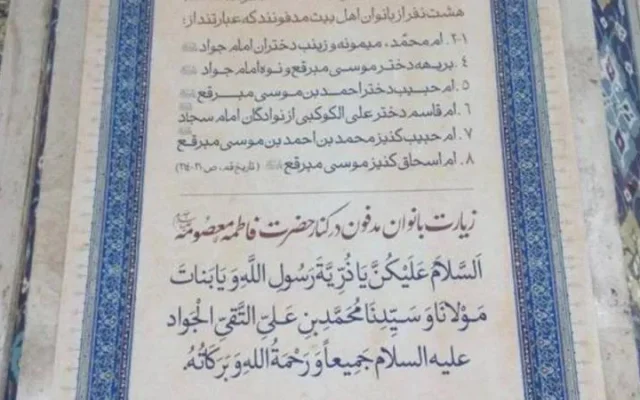 هشت نفر از بانوان اهل بیت مدفونند که عبارتند از:
۱-۲. ام محمّد، میمونه و زینب دختران امام جواد
۴. بریهه دختر موسی مبرقع و نوه امام جواد
۵. ام حبیب دختر احمد بن موسی مبرقع
۶. ام قاسم دختر علی الکوکبی از نوادگان امام سجاد
۷. ام حبیب کنیز محمد بن احمد بن موسی مبرقع
۸. ام اسحاق کنیز موسی مبرقع (تاریخ قم، ص
زیارت بانوان مدفون در کنار حضرت فاطمه معصومه
اَلسَّلامُ عَلَیْکُنَّ یَا ذُرِّیَّةَ رَسُولِ اللَّهِ وَ یَا بَنَاتَ
مَوْلَانَا وَ سَیِّدِنَا مُحَمَّدِ بْنِ عَلِیٍّ التَّقِیِّ الْجَوادِ
علیه السلام جَمیعاً وَ رَحْمَةُ اللهِ وَ بَرَکَاتُهُ.